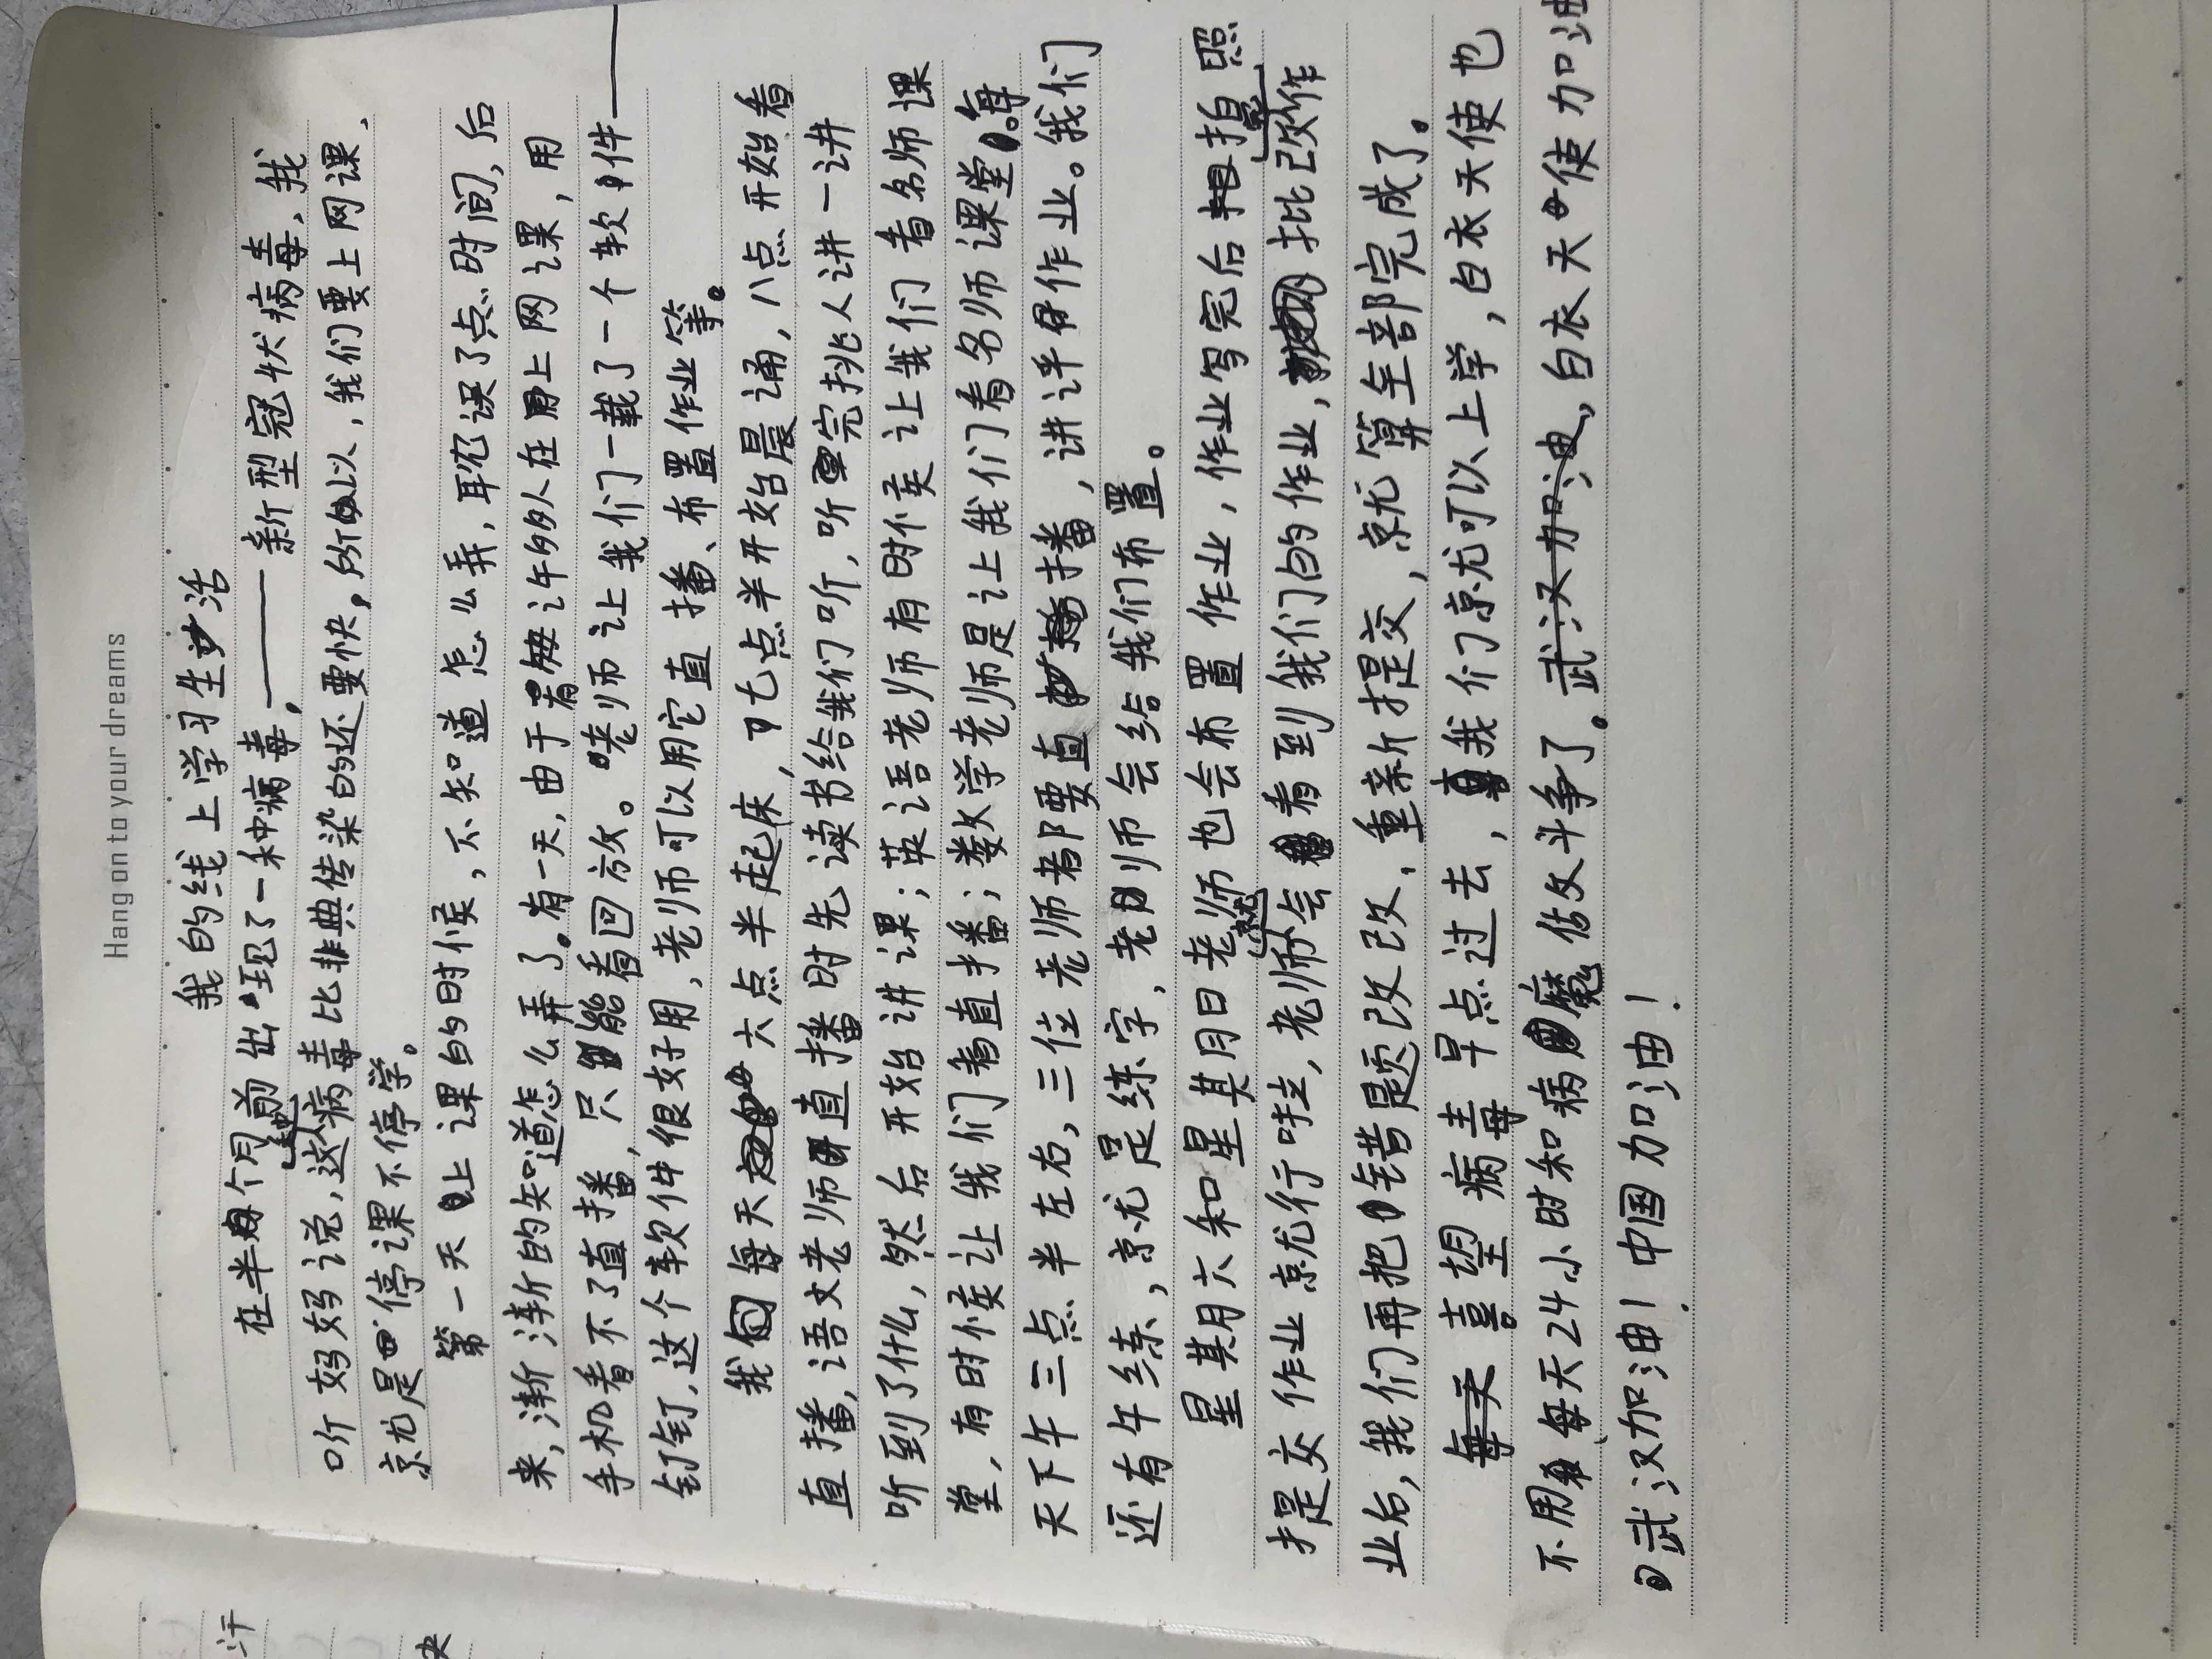 Hang on to your dreams
我的线上学习生活
在半个月前出现了一种病毒，——新型冠状病毒，我
听妈妈说，这种病毒比非典传染的还要快，所以，我们要上网课，
就是停课不停学。
第一天上课的时候，不知道怎么弄，耽误了点时间，后
来，渐渐的知道怎么弄了。有一天，由于许多人在上网课，用
手机看不了直播，只能看回放。老师让我们下载了一个软件——
钉钉，这个软件很好用，老师可以用它直播、布置作业等。
我每天六点半起床，七点半开始晨诵，八点开始看
直播，语文老师直播时先读书给我们听，听完挑人讲一讲
听到了什么，然后开始讲课；英语老师有时候让我们看名师课
堂，有时候让我们看直播；数学老师是让我们看名师课堂。每
天下午三点半左右，三位老师都要直播，讲评作业。我们
还有午练，就是练字，老师会给我们布置。
星期六和星期日老师也会布置作业，作业写完后拍照
提交作业就行啦，老师就会看到我们的作业，批改完作
业后，我们再把错题改改，重新提交，就算全部完成了。
喜望病毒早点过去，我们就可以上学，白衣天使也
不用每天24小时和病魔做斗争了。武汉加油，白衣天使加油
武汉加油！中国加油！
汗
央